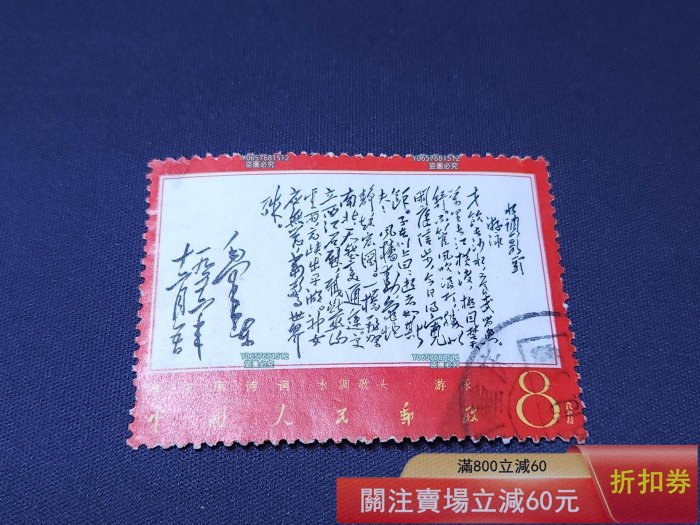 Y0657681512
盜圖必究
Y0657681512
盜圖必究
水调歌头
游泳
万里长江横渡 极目楚天
舒 不管风吹浪打 胜似
闲庭信步 今日得宽
馀 子在川上曰 逝者如斯
夫 风樯动 龟蛇
静 起宏图 一桥飞架
南北 天堑变通途 更
立西江石壁 截断巫山
云雨 高峡出平湖 神女
应无恙 当惊世界
殊
毛泽东
一九五六年
十二月五日
Y0657681512
盜圖必究
Y0657681512
盜圖必究
诗词 水调歌头·游泳
中国人民邮政
8
滿800立減60
關注賣場立減60元
折扣券